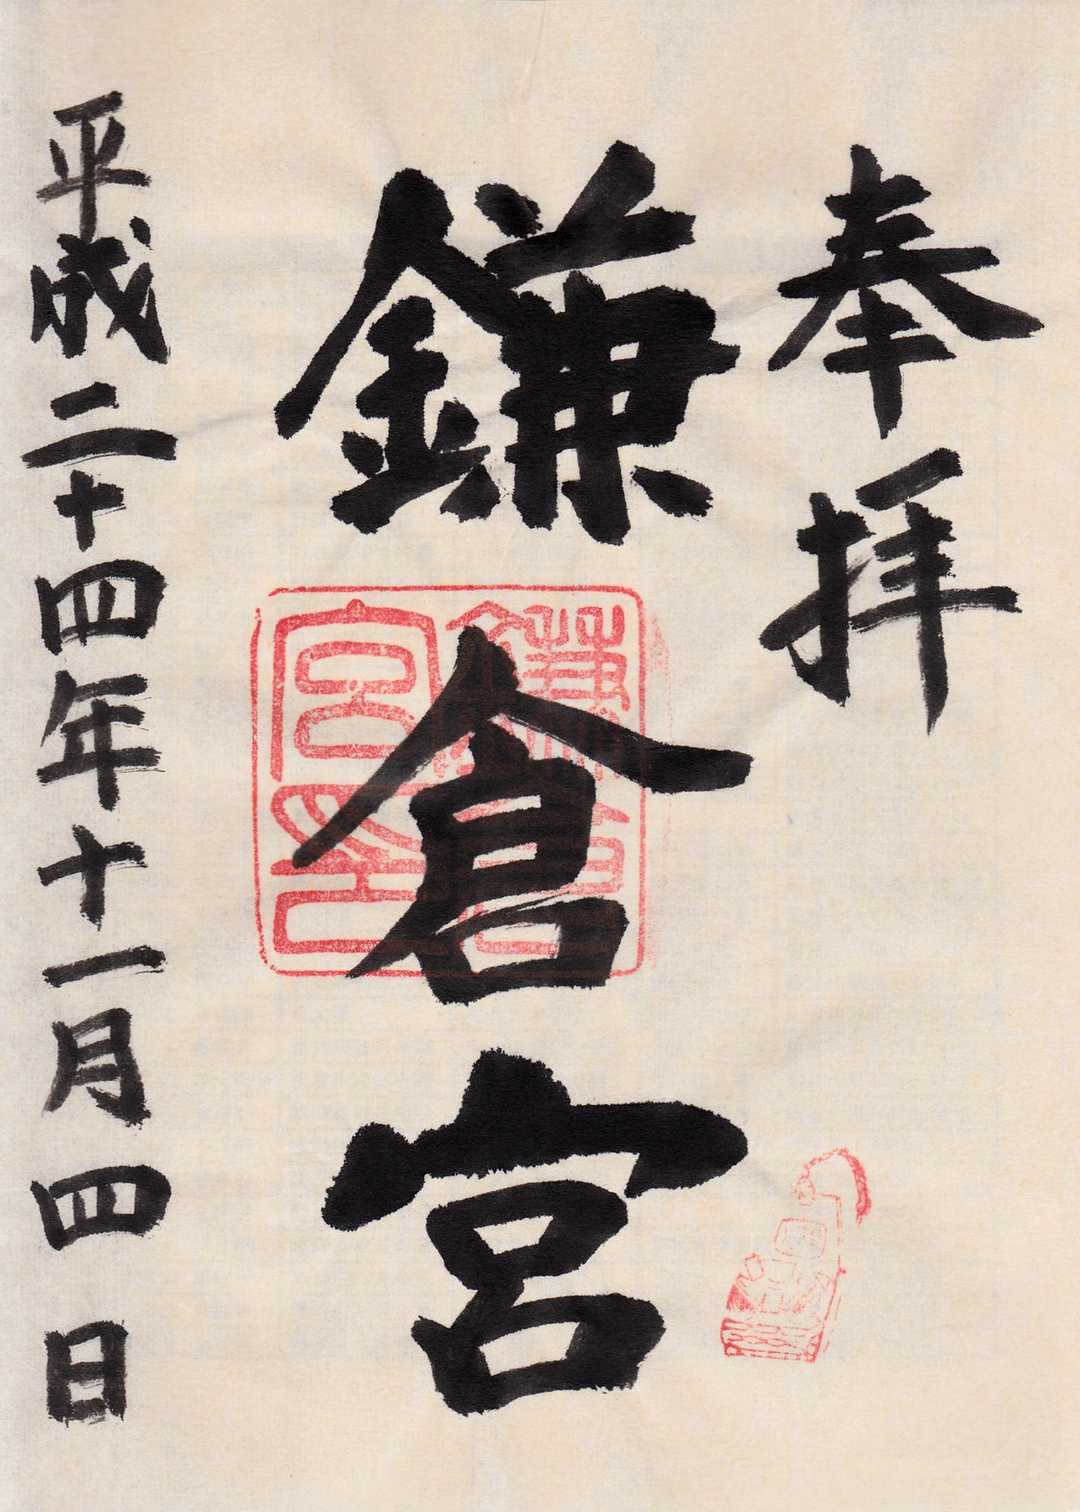 奉拝
鎌倉宮
鎌倉宮印
平成二十四年十一月四日